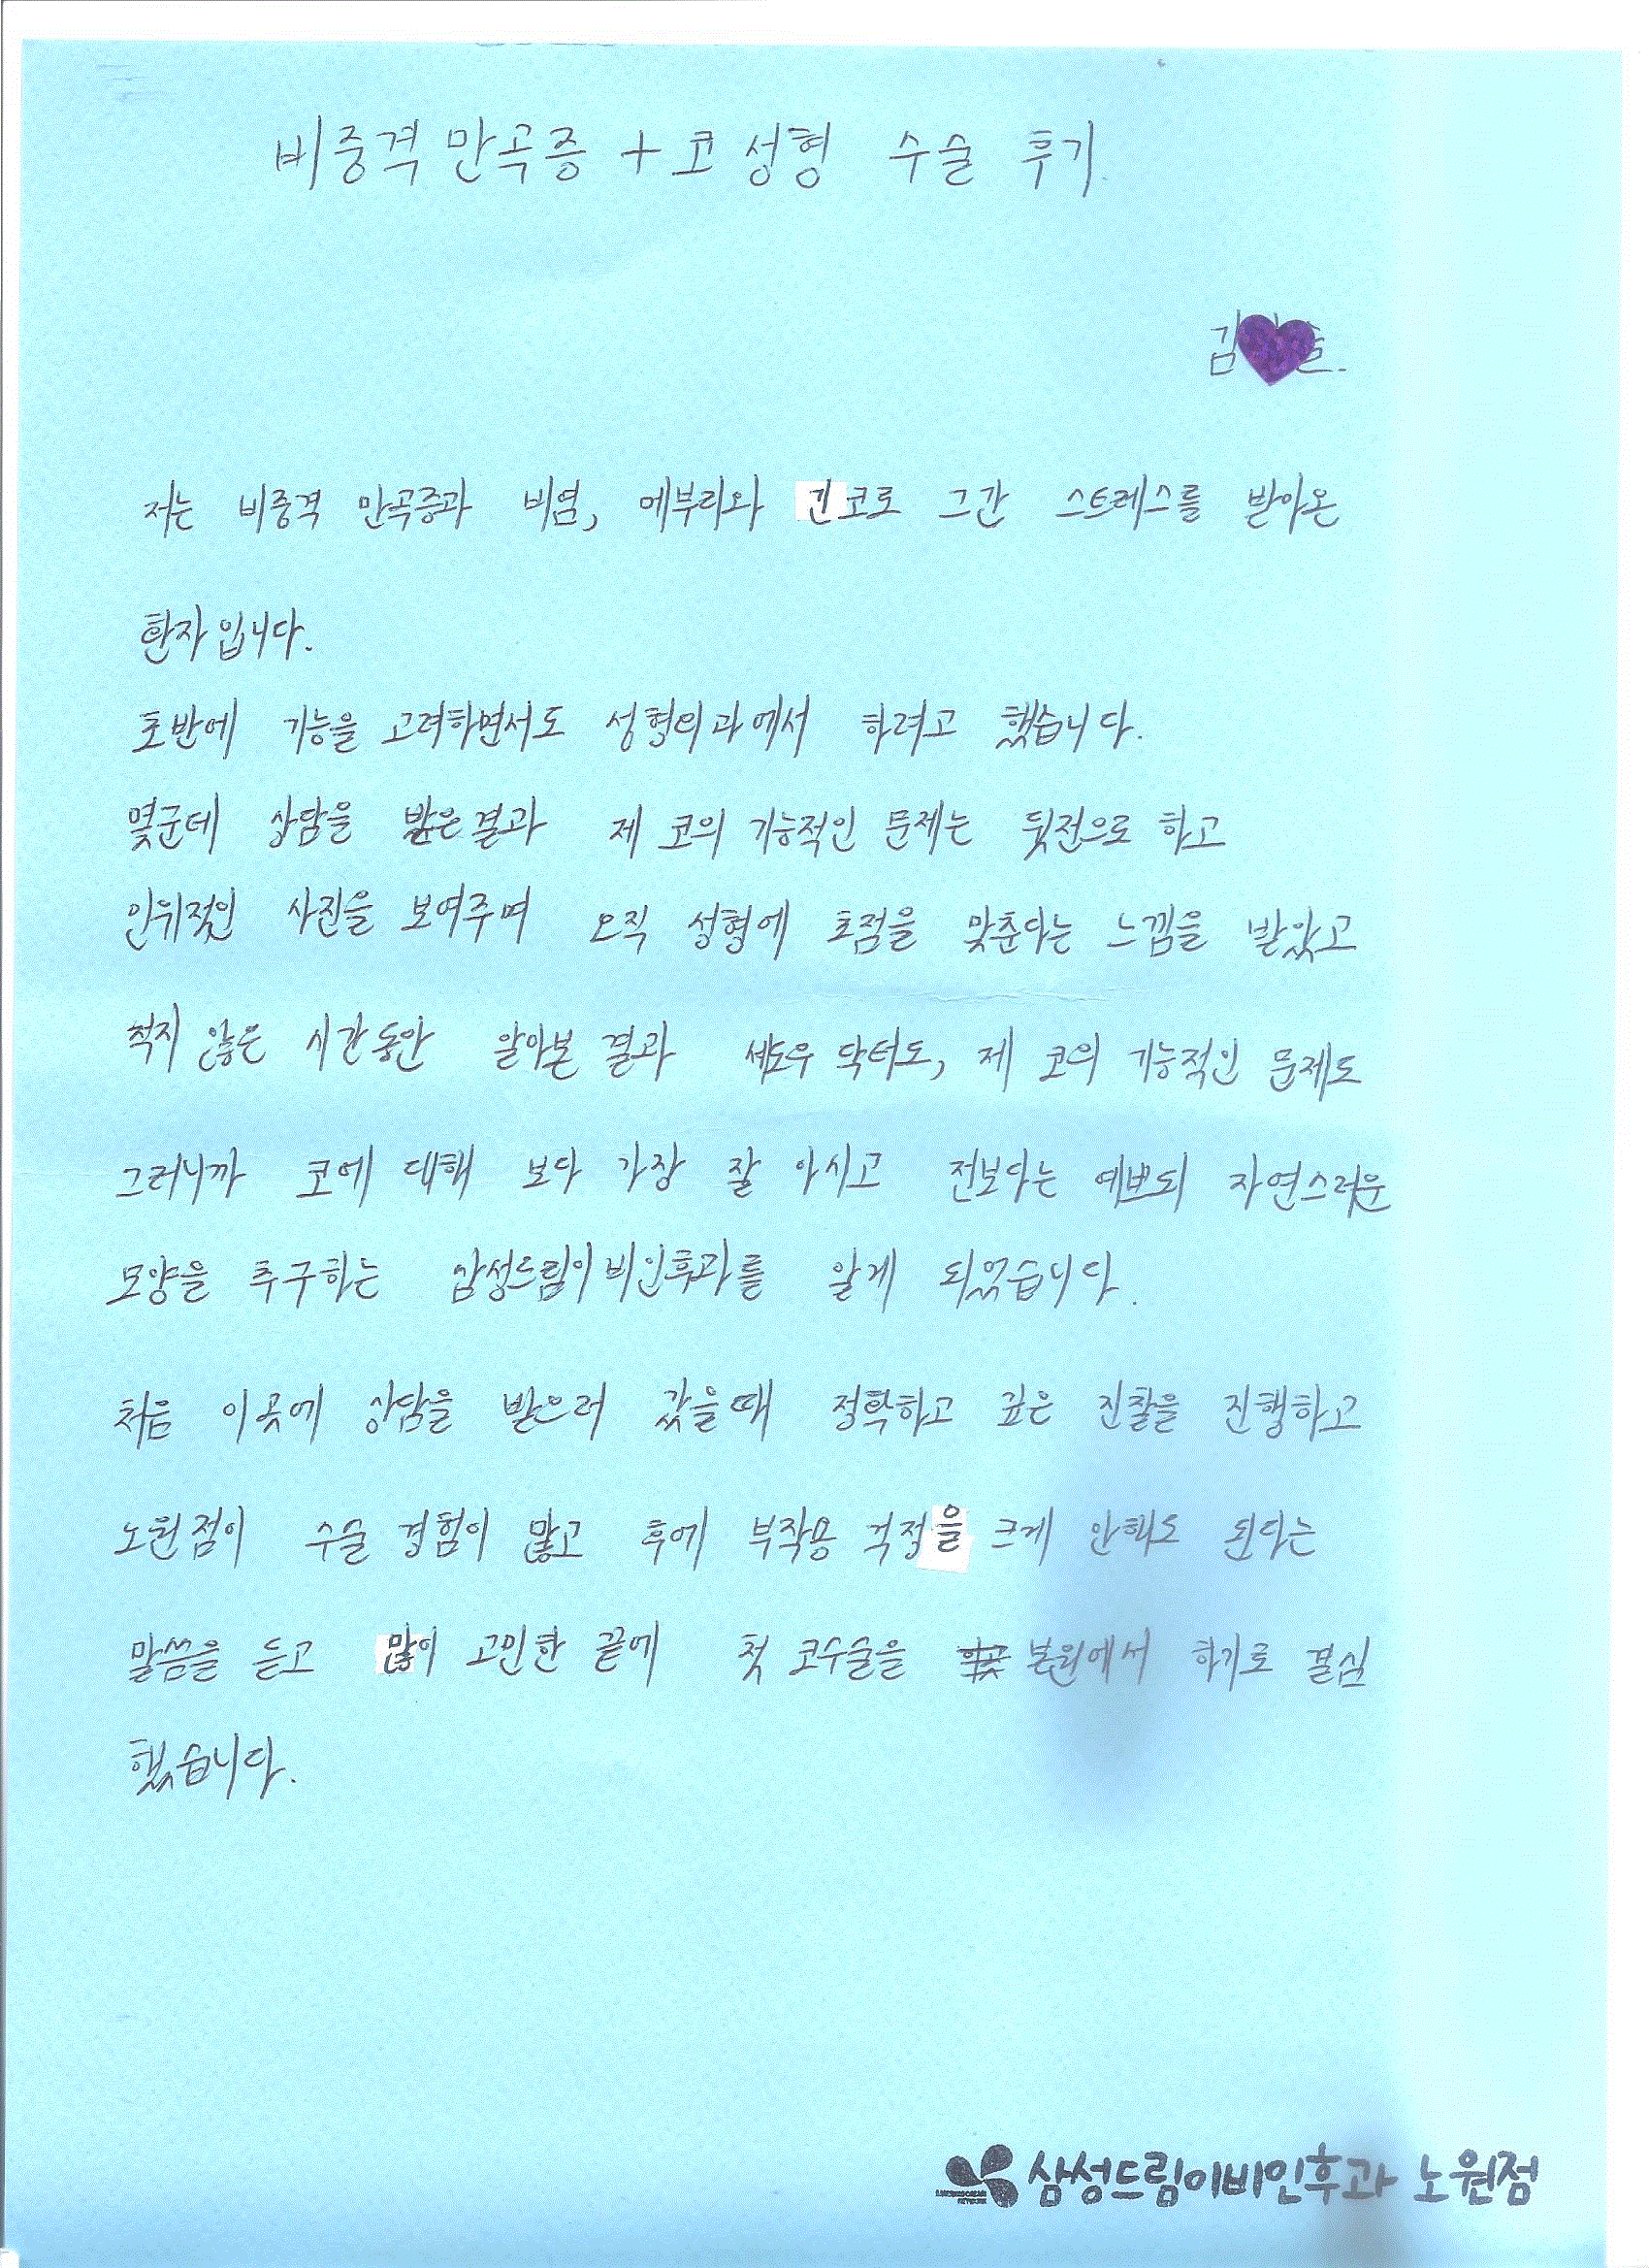 비중격만곡증 + 코 성형 수술 후기.
김
저는 비중격 만곡증과 비염, 메부리와 긴코로 그간 스트레스를 받아온
환자입니다.
초반에 기능을 고려하면서도 성형외과에서 하려고 했습니다.
몇군데 상담을 받은결과 제 코의 기능적인 문제는 뒷전으로 하고
인위적인 사진을 보여주며 오직 성형에 초점을 맞춘다는 느낌을 받았고
적지 않은 시간동안 알아본 결과 섀도우 닥터도, 제 코의 기능적인 문제도
그러니까 코에 대해 보다 가장 잘 아시고 전보다는 예쁘되 자연스러운
모양을 추구하는 삼성드림이비인후과를 알게 되었습니다.
처음 이곳에 상담을 받으러 갔을때 정확하고 깊은 진찰을 진행하고
노원점이 수술 경험이 많고 후에 부작용 걱정을 크게 안해도 된다는
말씀을 듣고 많이 고민한 끝에 첫 코수술을 본원에서 하기로 결심
했습니다.
삼성드림이비인후과 노원점